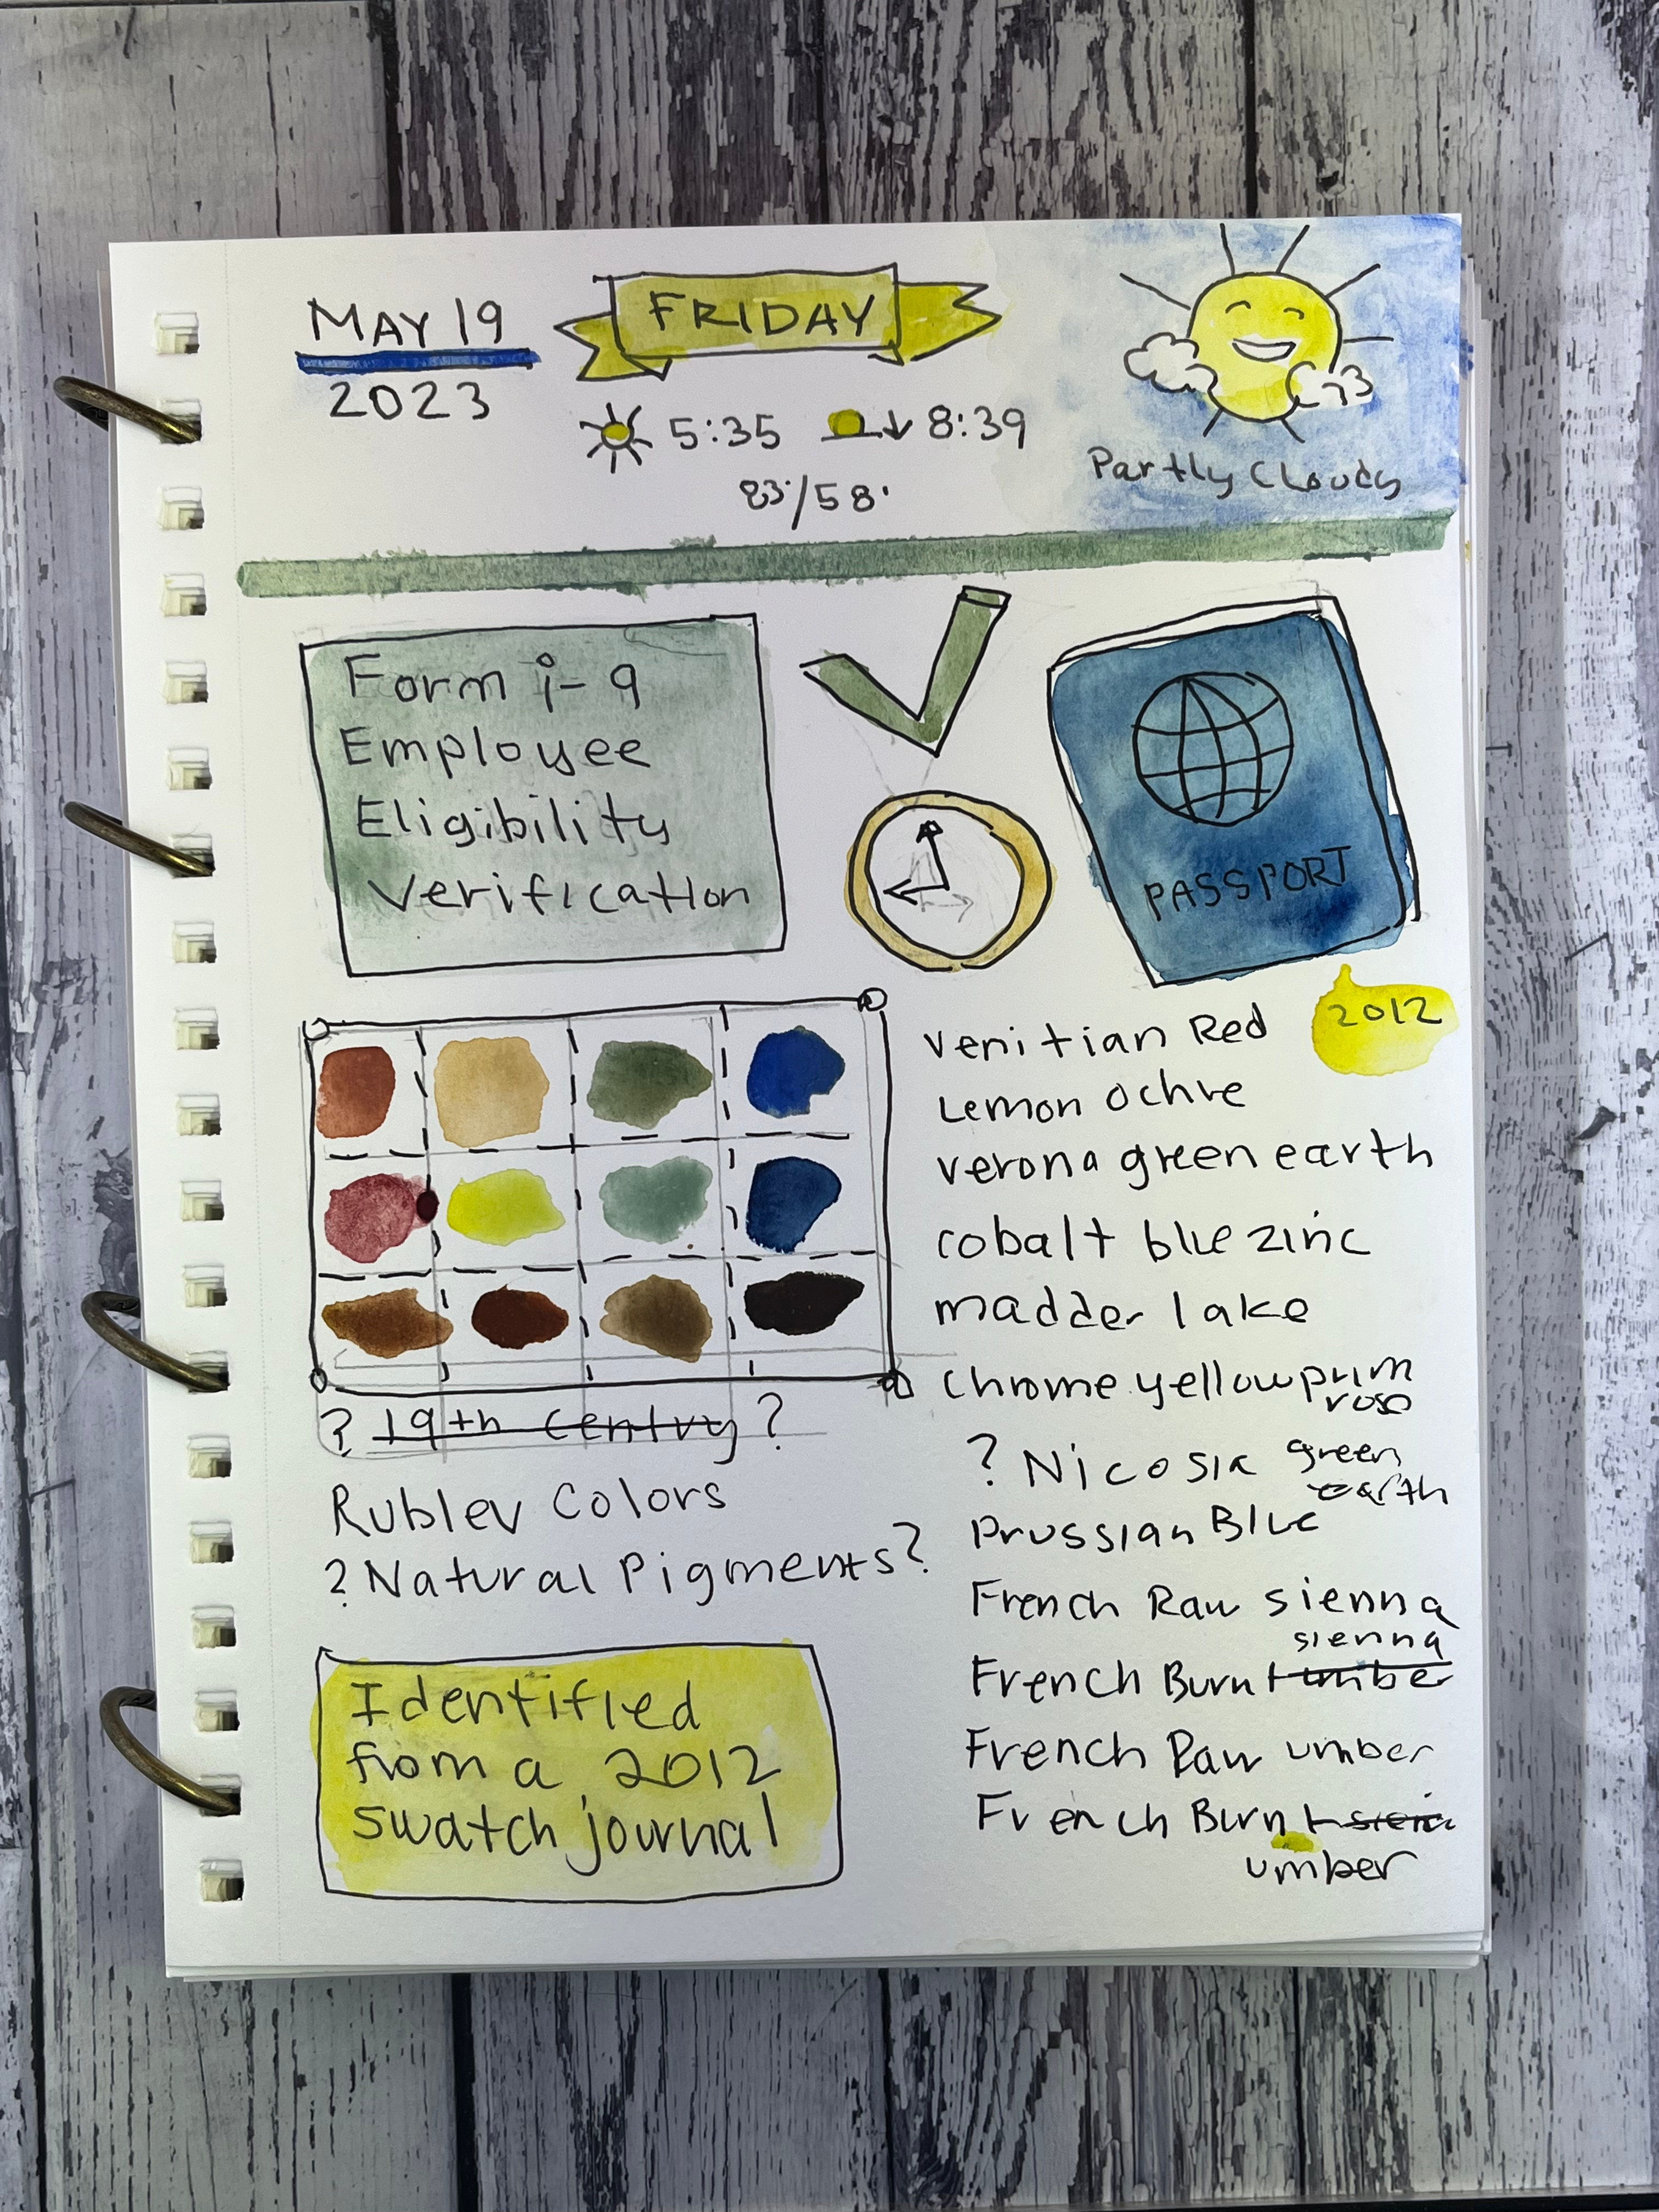 MAY 19
2023
FRIDAY
5:35 8:39
83°/58°
Partly Cloudy
Form i-9
Employee
Eligibility
Verification
PASSPORT
2012
Venitian Red
Lemon Ochre
verona green earth
cobalt blue zinc
madder lake
chrome yellow prim
rose
? Nicosia green
earth
Prussian Blue
French Raw sienna
sienna
French Burnt umber
French Raw umber
French Burnt
umber
? 19th Centry ?
Rublev Colors
? Natural Pigments?
Identified
from a 2012
swatch journal